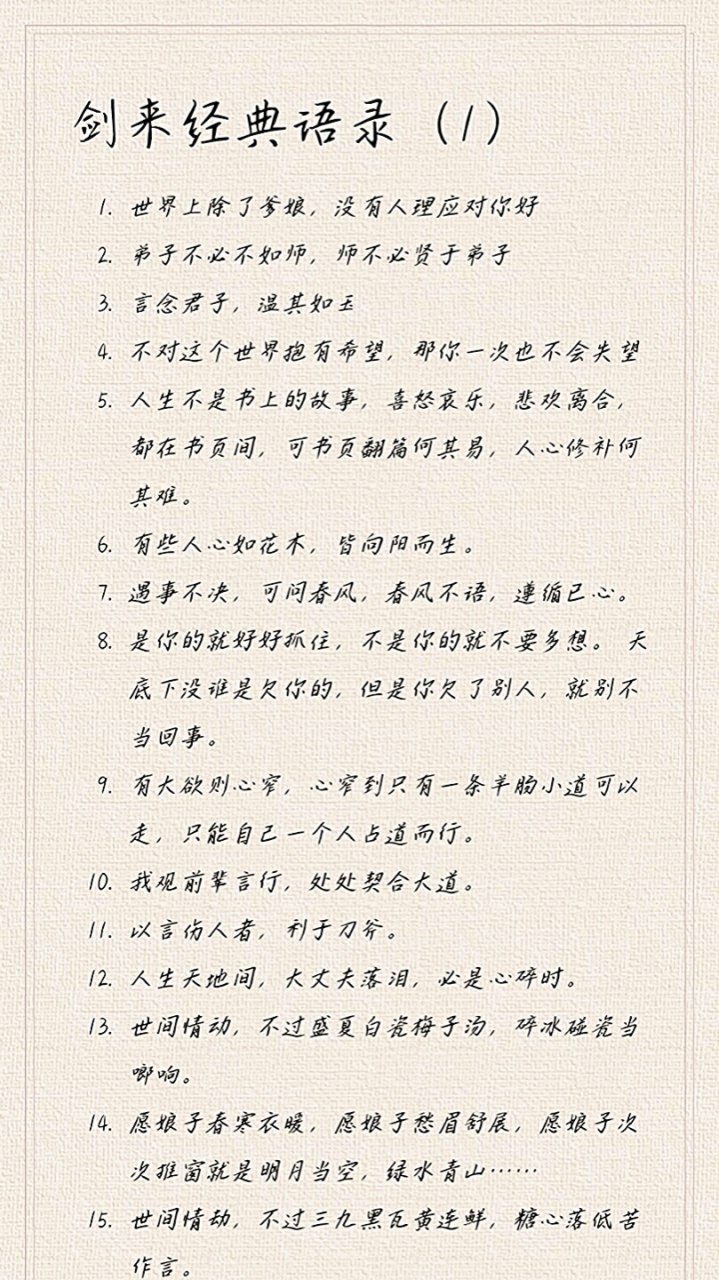 剑来经典语录（1）
1. 世界上除了爹娘，没有人理应对你好
2. 弟子不必不如师，师不必贤于弟子
3. 言念君子，温其如玉
4. 不对这个世界抱有希望，那你一次也不会失望
5. 人生不是书上的故事，喜怒哀乐，悲欢离合，
都在书页间，可书页翻篇何其易，人心修补何
其难。
6. 有些人心如花木，皆向阳而生。
7. 遇事不决，可问春风，春风不语，遵循己心。
8. 是你的就好好抓住，不是你的就不要多想。 天
底下没谁是欠你的，但是你欠了别人，就别不
当回事。
9. 有大欲则心窄，心窄到只有一条羊肠小道可以
走，只能自己一个人占道而行。
10. 我观前辈言行，处处契合大道。
11. 以言伤人者，利于刀斧。
12. 人生天地间，大丈夫落泪，必是心碎时。
13. 世间情动，不过盛夏白瓷梅子汤，碎冰碰瓷当
啷响。
14. 愿娘子春寒衣暖，愿娘子愁眉舒展，愿娘子次
次推窗就是明月当空，绿水青山……
15. 世间情动，不过三九黑瓦黄连鲜，糖心落低苦
作言。